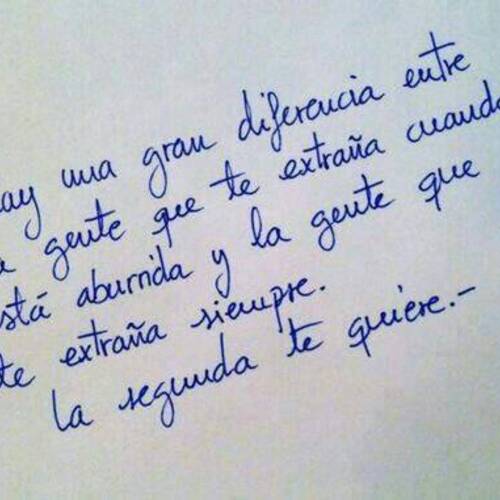 ay una gran diferencia entre
a gente que te extraña cuando
stá aburrida y la gente que
te extraña siempre.
la segunda te quiere.-